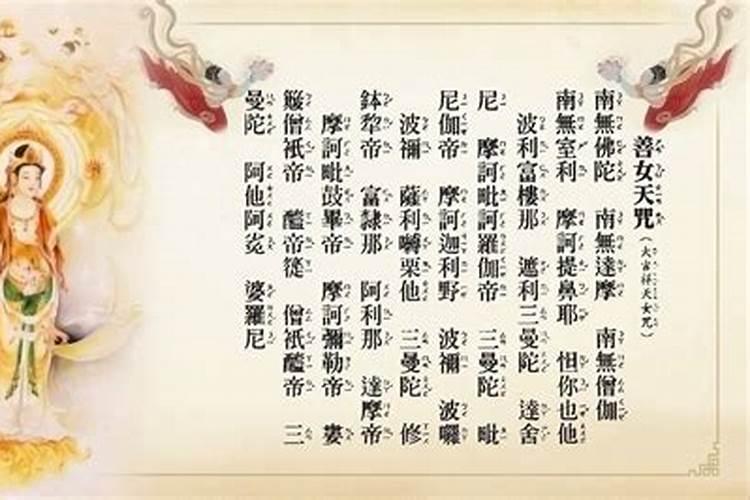 善女天咒（大吉祥天女咒）
南無佛陀 南無達摩 南無僧伽
南無室利 摩訶提鼻耶 怛你也他
波利富樓那 遮利三曼陀 達舍
尼 摩訶毗訶羅伽帝 三曼陀 毗
尼伽帝 摩訶迦利野 波禰 波囉
波禰 薩利嚩栗他 三曼陀 修
鉢犂帝 富隸那 阿利那 達摩帝
摩訶毗鼓畢帝 摩訶彌勒帝 婁
簸僧祇帝 醯帝簁 僧祇醯帝 三
曼陀 阿他阿㝹 婆羅尼